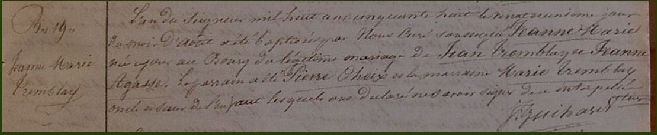 Bs 19e
Jeanne Marie
Tremblay
L'an du Seigneur mil huit cent cinquante huit le vingt neuvième jour
du mois d'Août a été baptisée par Nous Curé soussigné Jeanne Marie
née ce jour au Bourg du légitime mariage de Jean Tremblay et Jeanne
Agasse. Le parrain a été Pierre et la marraine Marie Tremblay
oncle et de l'enfant lesquels ont déclaré ne savoir signer de ce interpellés
J. Guihard